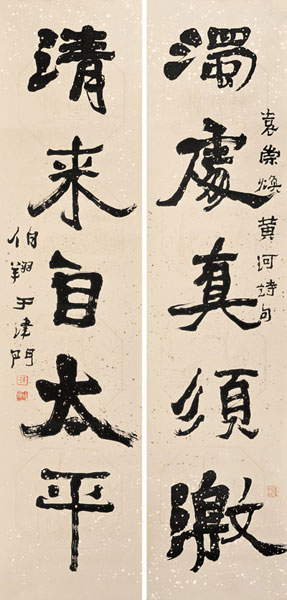 濁處真須激
袁崇煥黃河詩句
清來自太平
伯翔于津門